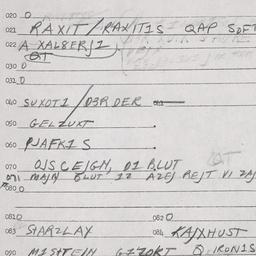 020 0
021 RAXIT/RAXITIS QAP SOFT
022 A XAL8ERJI
QT
030 0
031 0
040 SUXOTI/D3R DER
050 GELZUXT
060 PJAFKIS
070 OJSCEIGN, DI BLUT
071 MAJN BLUT IZ AZEJ REJT VI ZAJ
080 0
081 0 082 0
083 SHARZLAY 084 KAJXHUST
090 MISHTEIN GIZOKT Q IRONIS